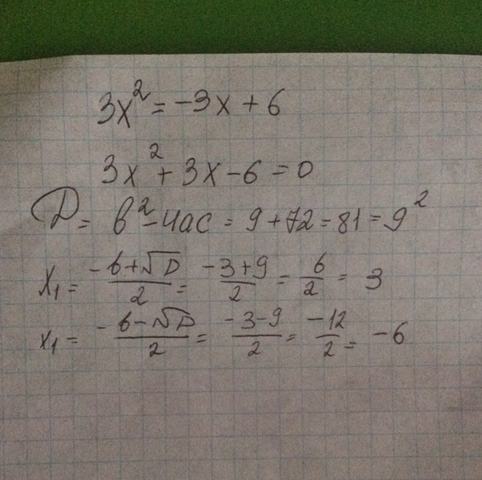 3x² = -3x + 6
3x² + 3x - 6 = 0
D = b² - 4ac = 9 + 72 = 81 = 9²
x₁ = (-b+√D)/2 = (-3+9)/2 = 6/2 = 3
x₁ = (-b-√D)/2 = (-3-9)/2 = -12/2 = -6